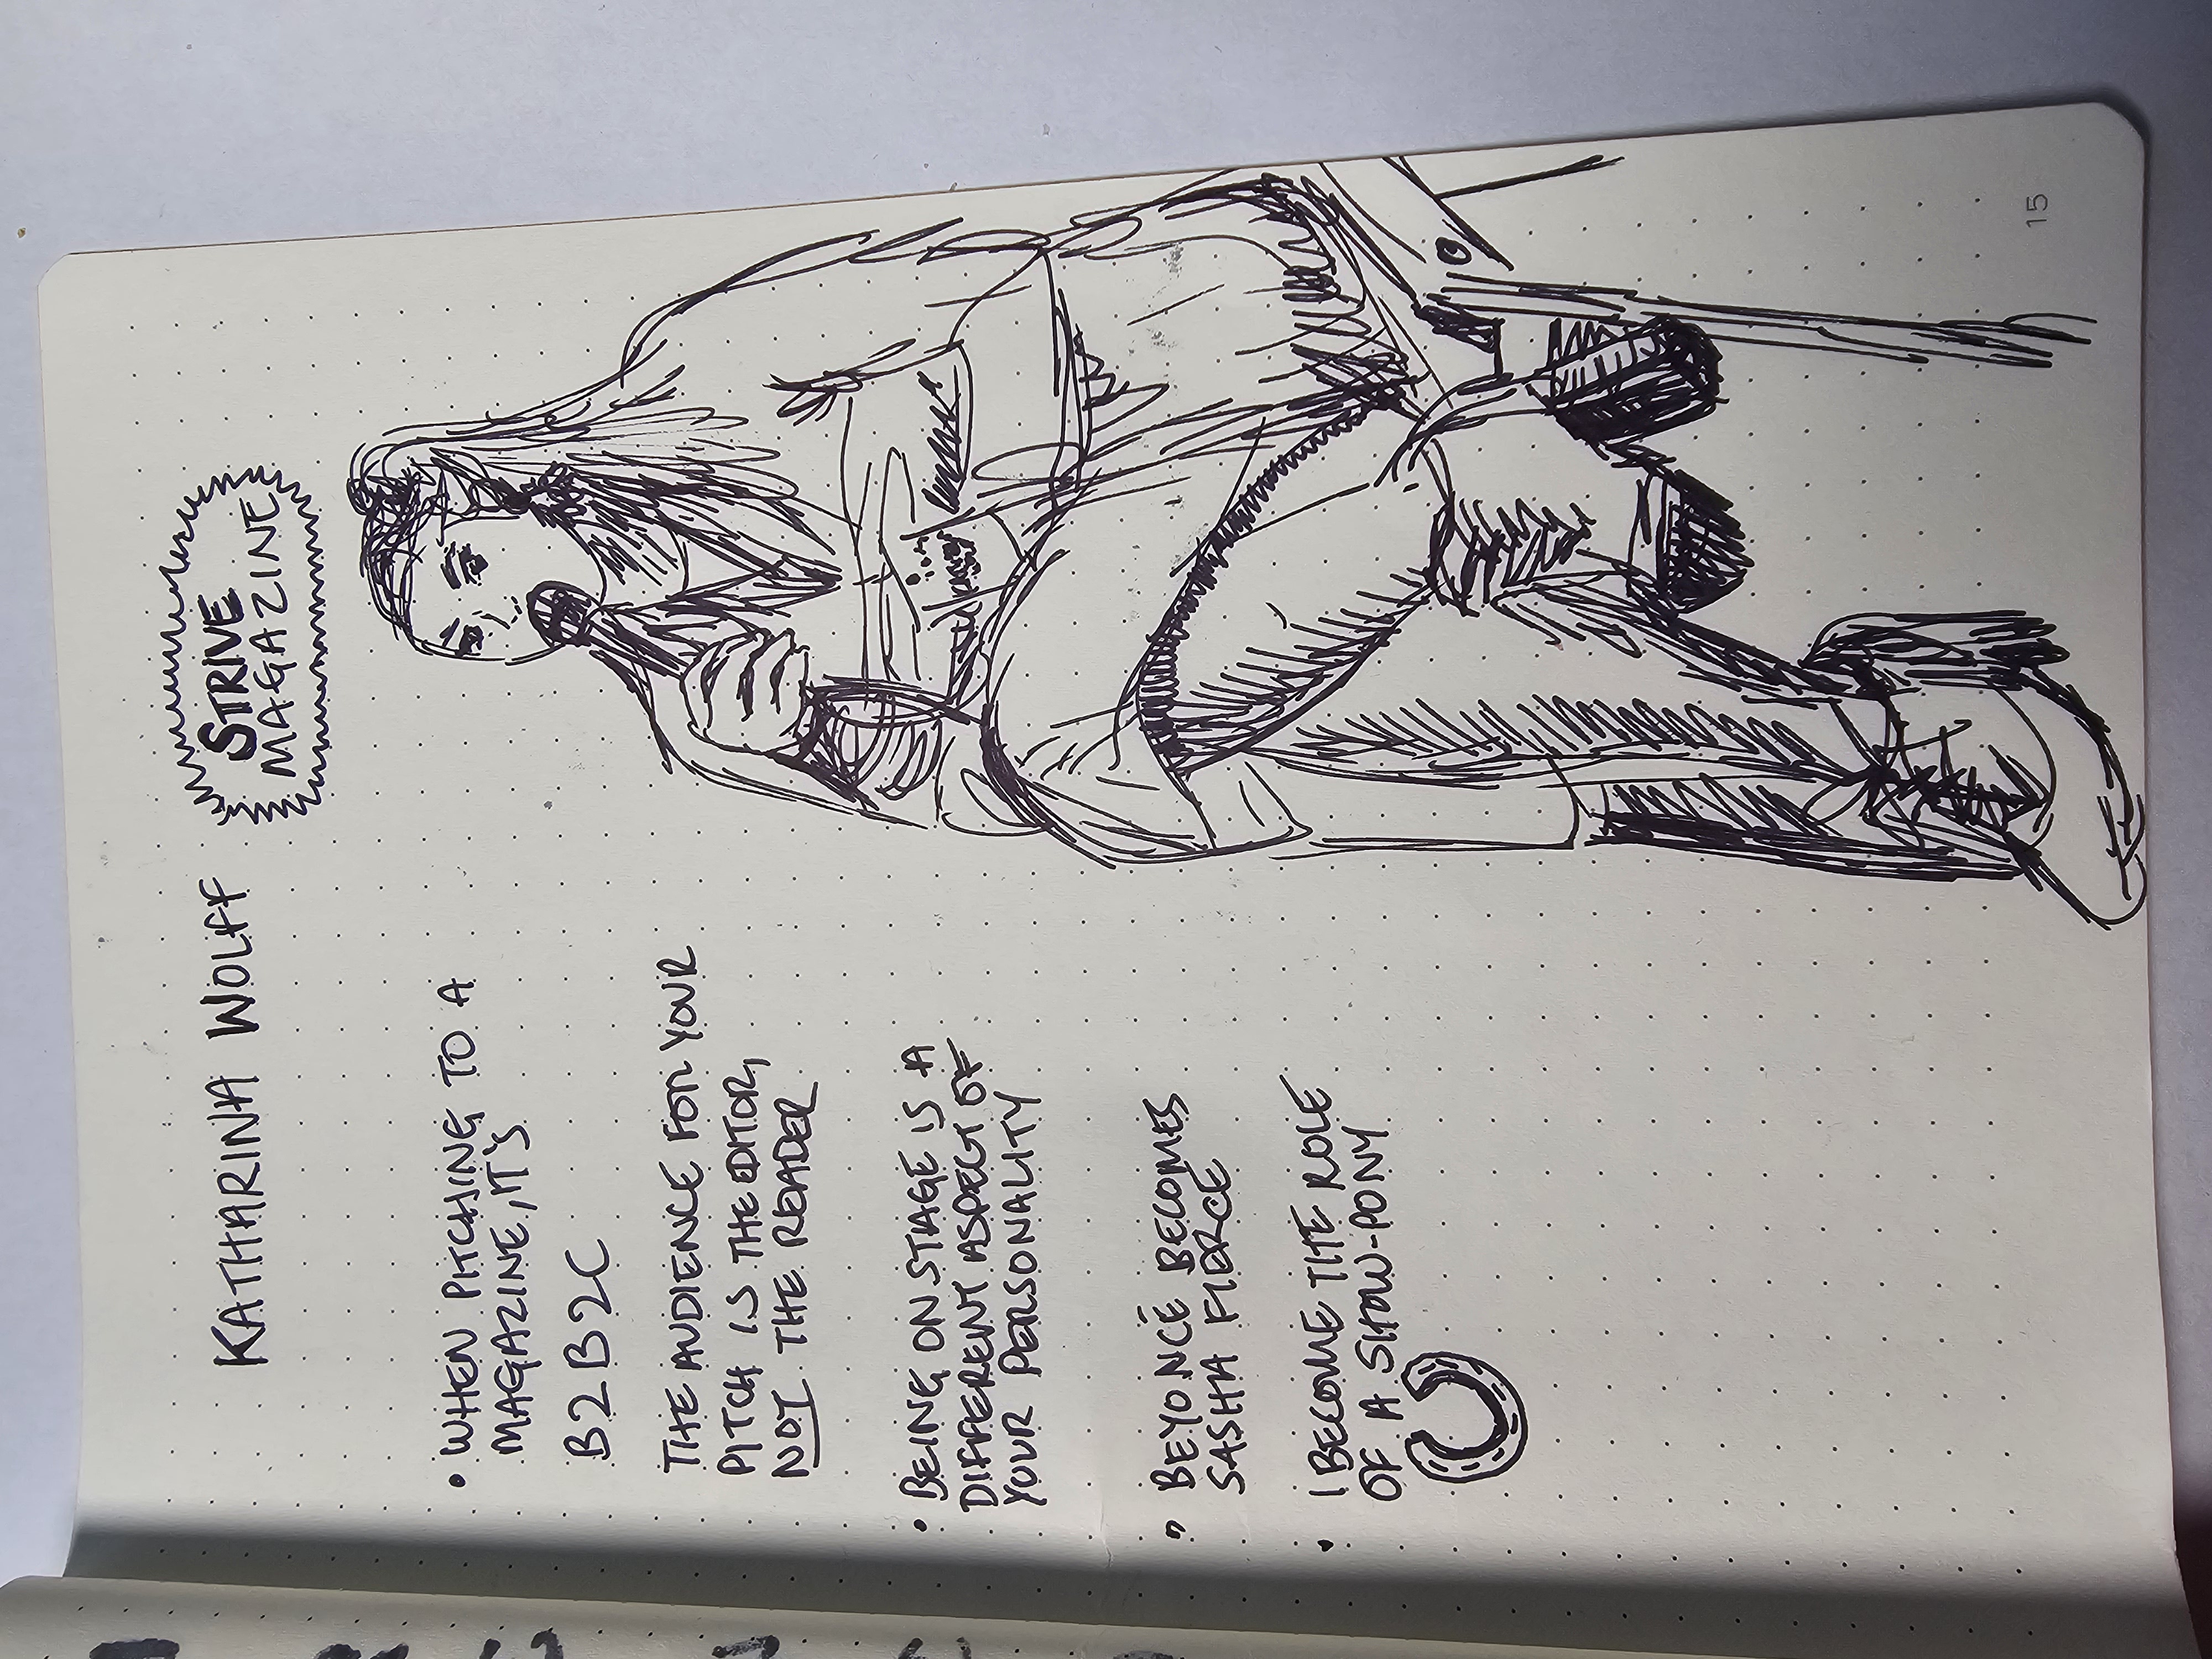 KATHARINA WOLFF
STRIVE
MAGAZINE
• WHEN PITCHING TO A
MAGAZINE, IT'S
B2B2C
THE AUDIENCE FOR YOUR
PITCH IS THE EDITOR,
NOT THE READER
• BEING ON STAGE IS A
DIFFERENT ASPECT OF
YOUR PERSONALITY
• BEYONCÉ BECOMES
SASHA FIERCE
• I BECOME THE ROLE
OF A SHOW-PONY
15